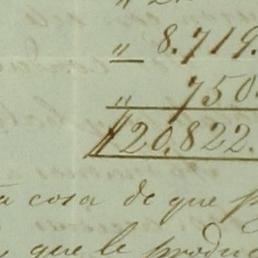 " 8.719.
" 750.
$20.822.
a cosa de que
que le produc